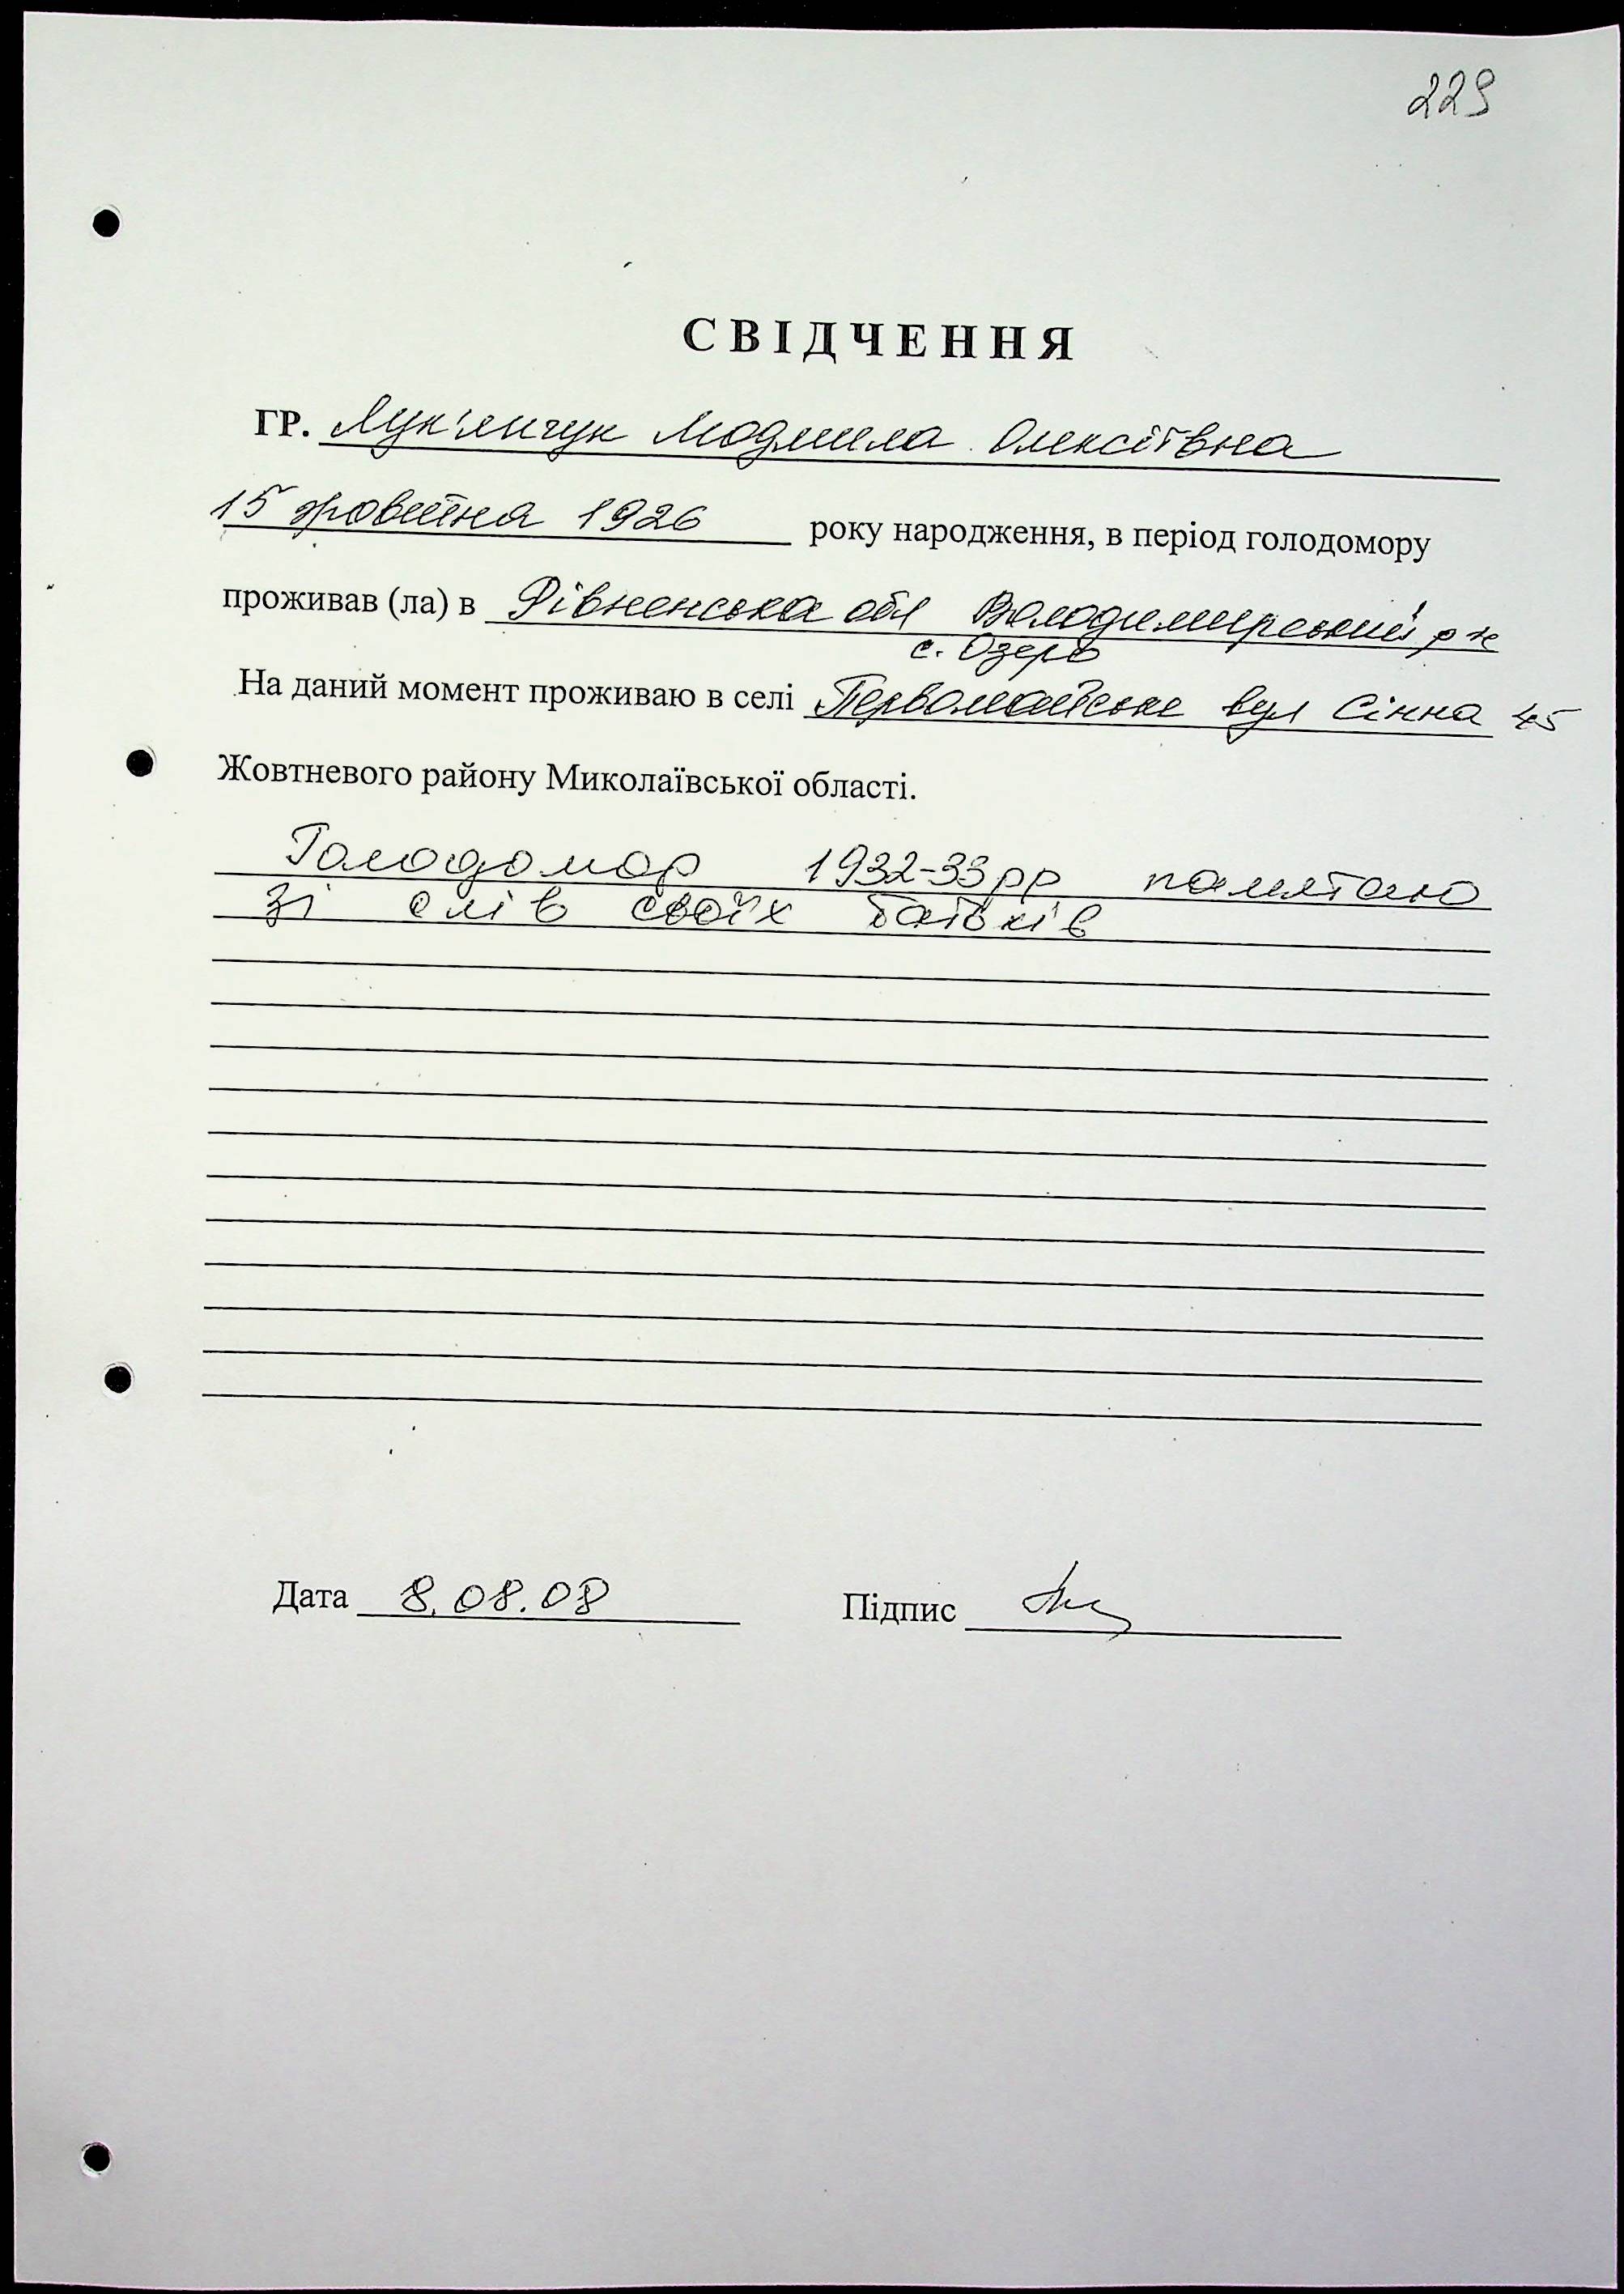 229
СВІДЧЕННЯ
ГР. Лук'янчук Людмила Олексіївна
15 жовтня 1926 року народження, в період голодомору
проживав (ла) в Рівненська обл Володимирський р-н
с. Озеро
На даний момент проживаю в селі Первомайське вул Сінна 45
Жовтневого району Миколаївської області.
Голодомор 1932-33рр памятаю
зі слів своїх батьків
Дата 8.08.08 Підпис